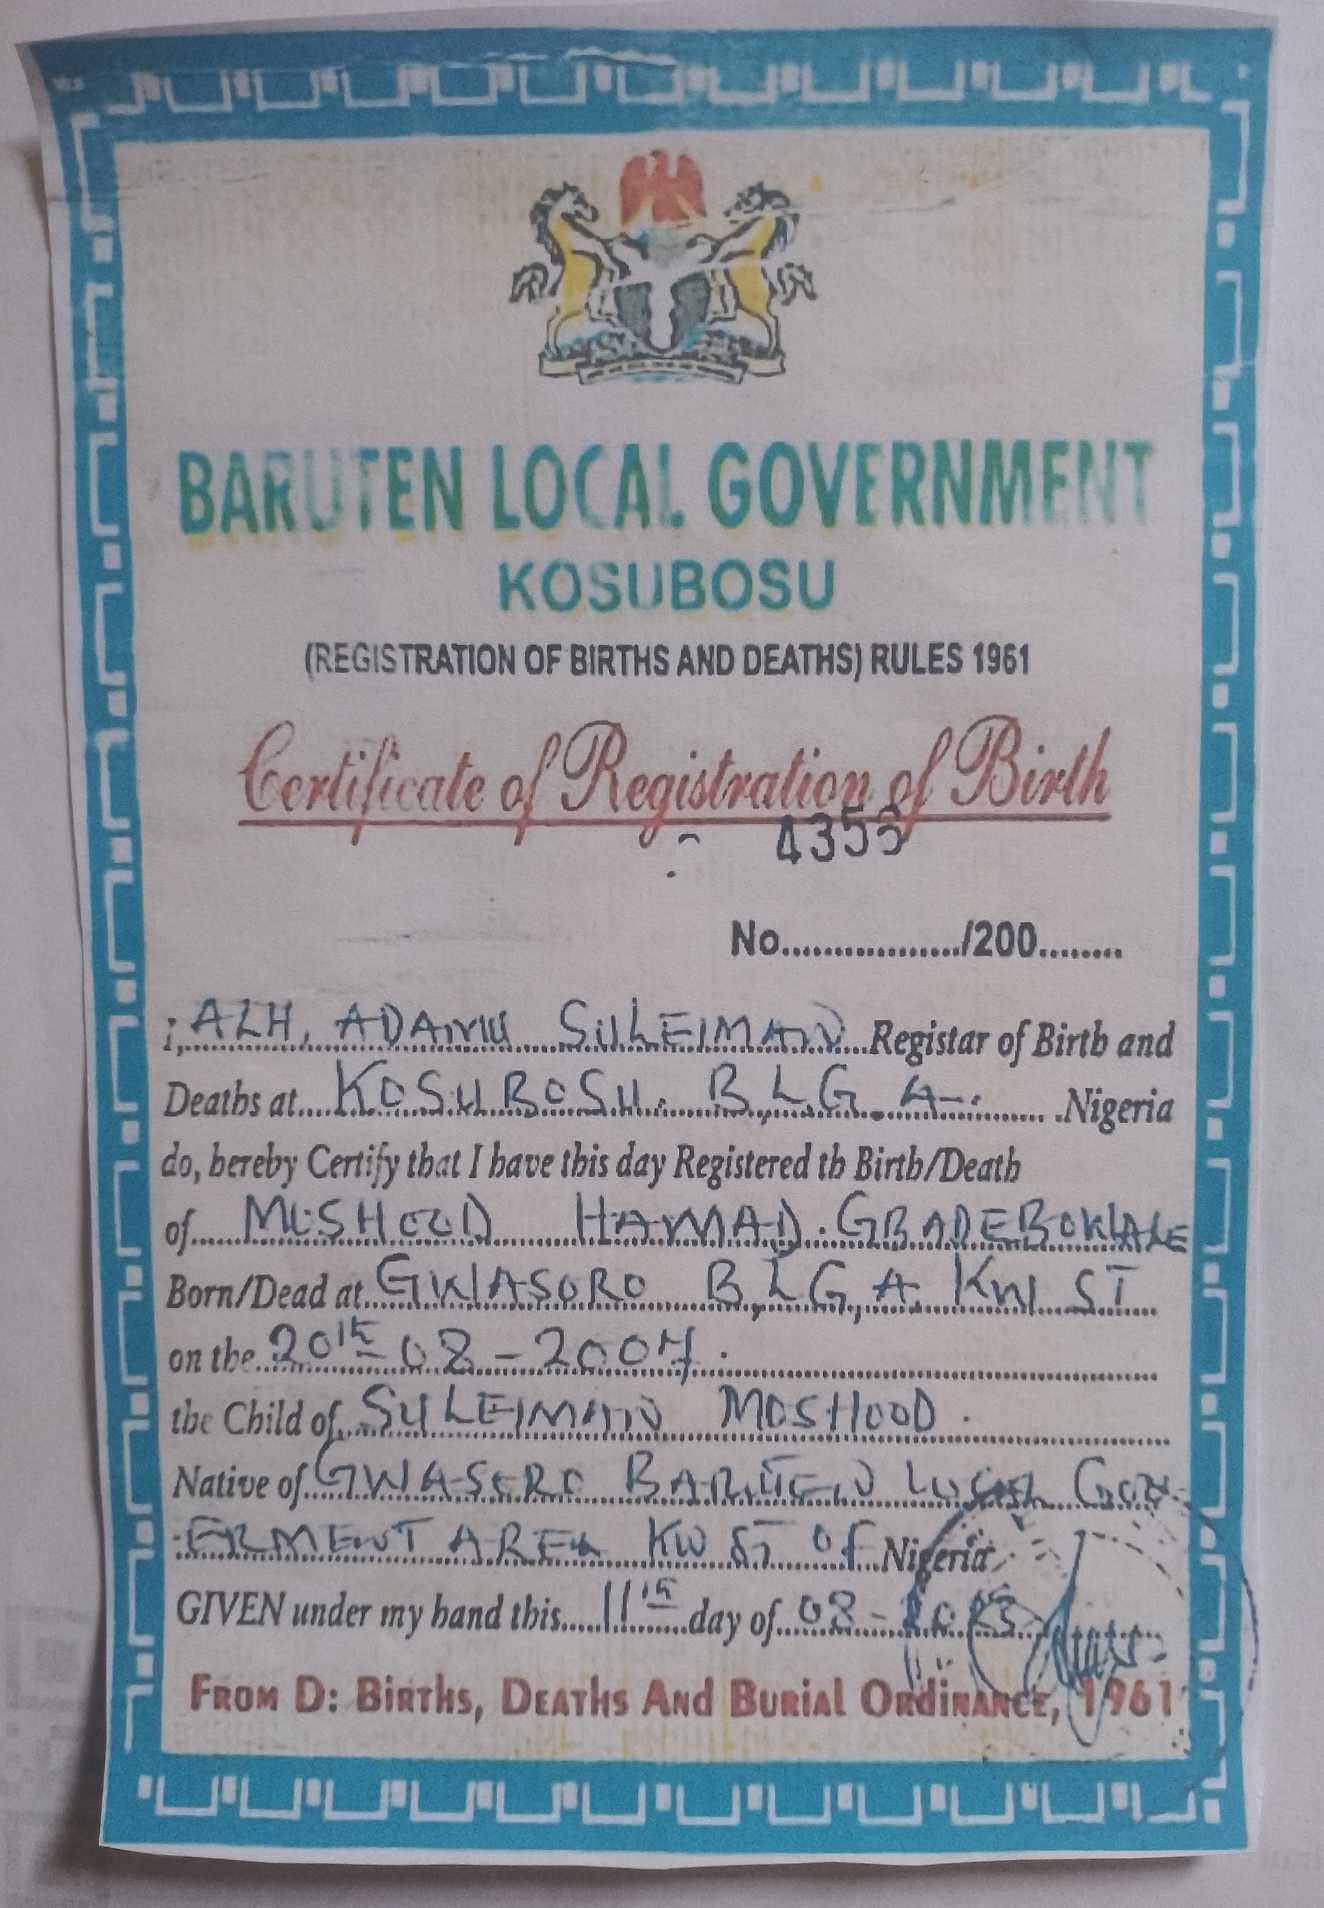 BARUTEN LOCAL GOVERNMENT
KOSUBOSU
(REGISTRATION OF BIRTHS AND DEATHS) RULES 1961
Certificate of Registration of Birth
4353
No................../200........
I, ALH. ADAMU SULEIMAN Registar of Birth and
Deaths at.... KOSUBOSU. B.L.G.A. Nigeria
do, hereby Certify that I have this day Registered th Birth/Death
of MOSHOOD HAMAD. GBADEBOWALE
Born/Dead at GWASORO B.L.G.A. KW ST
on the 20th - 08 - 2007.
the Child of SULEIMAN MOSHOOD.
Native of GWASORO BARUTEN LOCAL GOV-
ERMENT AREA KW ST Of Nigeria
GIVEN under my hand this 11th day of 08 -
From D: Births, Deaths And Burial Ordinance, 1961